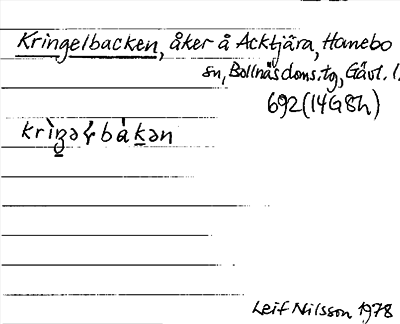 Kringelbacken, åker å Acktjära, Hanebo
sn, Bollnäs doms.tg, Gävl. l.
692 (14G8h)
krìŋəɬbákən
Leif Nilsson 1978